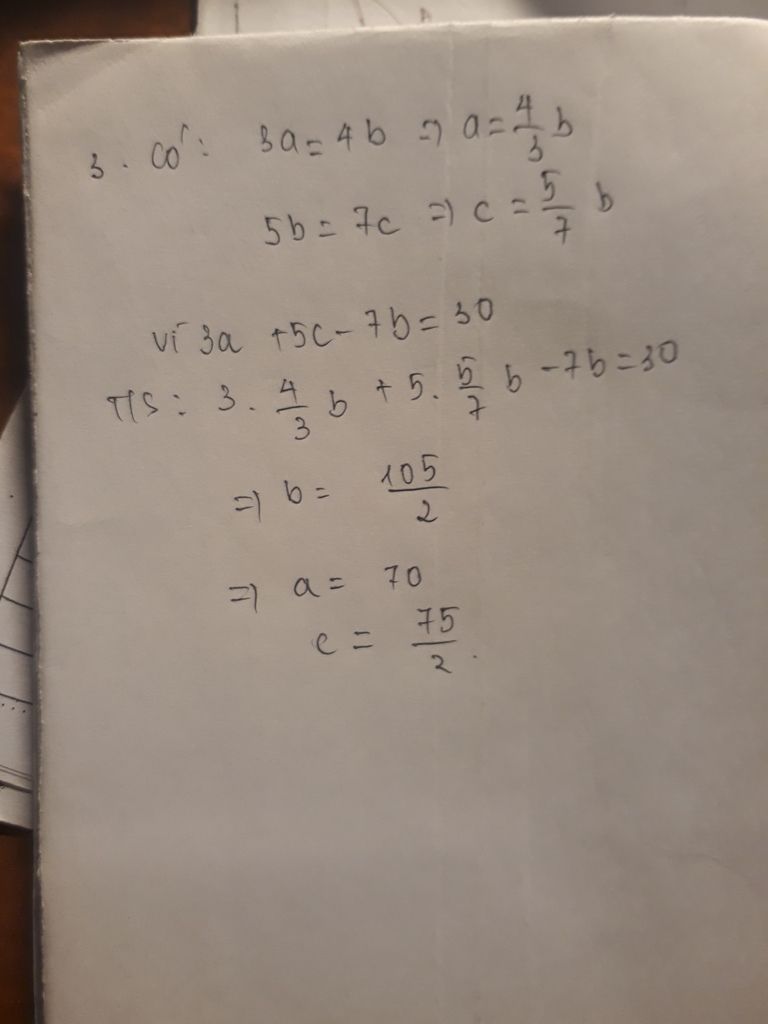 3. Có: 3a = 4b => a = 4/3 b
5b = 7c => c = 5/7 b
vì 3a + 5c - 7b = 30
T/S: 3. 4/3 b + 5. 5/7 b - 7b = 30
=> b = 105/2
=> a = 70
c = 75/2.